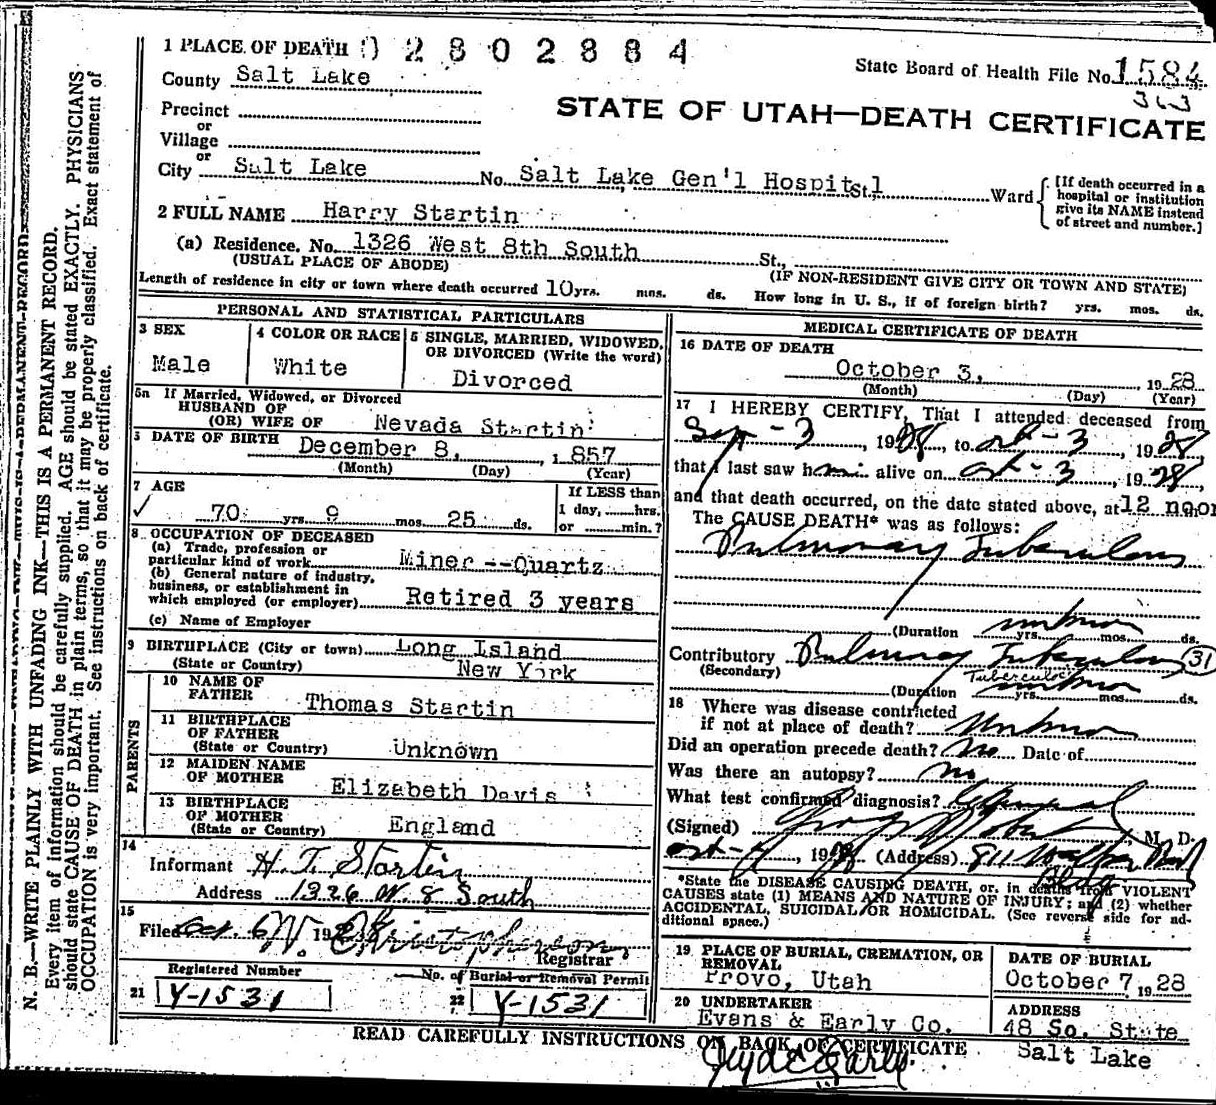 1 PLACE OF DEATH 02802884
State Board of Health File No. 1584
County Salt Lake
Precinct
STATE OF UTAH—DEATH CERTIFICATE
or
Village
or
City Salt Lake No. Salt Lake Gen'l Hospital St. Ward
[If death occurred in a
hospital or institution
give its NAME instead
of street and number.]
2 FULL NAME Harry Startin
(a) Residence. No. 1326 West 8th South St.,
(USUAL PLACE OF ABODE) (IF NON-RESIDENT GIVE CITY OR TOWN AND STATE)
Length of residence in city or town where death occurred 10 yrs. mos. ds. How long in U. S., if of foreign birth? yrs. mos. ds.
PERSONAL AND STATISTICAL PARTICULARS
3 SEX
Male
4 COLOR OR RACE
White
5 SINGLE, MARRIED, WIDOWED,
OR DIVORCED (Write the word)
Divorced
5a If Married, Widowed, or Divorced
HUSBAND OF
(OR) WIFE OF Nevada Startin
DATE OF BIRTH December 8, 1857
(Month) (Day) (Year)
7 AGE
70 yrs. 9 mos. 25 ds.
If LESS than
1 day, hrs.
or min.?
8 OCCUPATION OF DECEASED
(a) Trade, profession or
particular kind of work Miner --Quartz
(b) General nature of industry,
business, or establishment in
which employed (or employer) Retired 3 years
(c) Name of Employer
9 BIRTHPLACE (City or town) Long Island
(State or Country) New York
PARENTS
10 NAME OF
FATHER Thomas Startin
11 BIRTHPLACE
OF FATHER
(State or Country) Unknown
12 MAIDEN NAME
OF MOTHER Elizabeth Davis
13 BIRTHPLACE
OF MOTHER
(State or Country) England
14
Informant H. T. Startin
Address 1326 W. 8 South
15
Filed Oct. 6 19 W. Christopherson
Registrar
Registered Number
21 Y-1531
No. of Burial or Removal Permit
22 Y-1531
MEDICAL CERTIFICATE OF DEATH
16 DATE OF DEATH
October 3, 1928
(Month) (Day) (Year)
17 I HEREBY CERTIFY, That I attended deceased from
Sept - 3, 1928, to Oct - 3 1928,
that I last saw him alive on Oct - 3, 1928,
and that death occurred, on the date stated above, at 12 noon
The CAUSE DEATH* was as follows:
Pulmonary Tuberculosis
(Duration unknown yrs. mos. ds.
Contributory Pulmonary Tuberculosis 31
(Secondary)
Tuberculosis
(Duration unknown yrs. mos. ds.
18 Where was disease contracted
if not at place of death? Unknown
Did an operation precede death? No Date of
Was there an autopsy? No
What test confirmed diagnosis?
(Signed) M. D.
Oct- 1928 (Address) 811 Walker Bank
Bldg
*State the DISEASE CAUSING DEATH, or, in deaths from VIOLENT
CAUSES state (1) MEANS AND NATURE OF INJURY; and (2) whether
ACCIDENTAL, SUICIDAL OR HOMICIDAL. (See reverse side for ad-
ditional space.)
19 PLACE OF BURIAL, CREMATION, OR
REMOVAL
Provo, Utah
DATE OF BURIAL
October 7, 1928
20 UNDERTAKER
Evans & Early Co.
ADDRESS
48 So. State
Salt Lake
READ CAREFULLY INSTRUCTIONS ON BACK OF CERTIFICATE
N. B.—WRITE PLAINLY WITH UNFADING INK—THIS IS A PERMANENT RECORD.
Every item of information should be carefully supplied. AGE should be stated EXACTLY. PHYSICIANS
should state CAUSE OF DEATH in plain terms, so that it may be properly classified. Exact statement of
OCCUPATION is very important. See instructions on back of certificate.